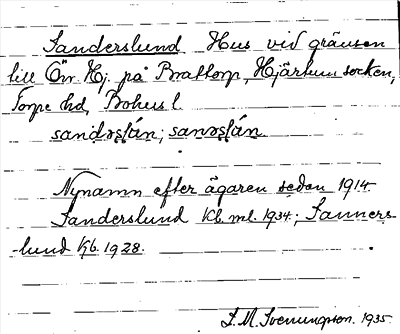 Sanderslund Hus vid gränsen
till Övr. Hj. på Brattorp, Hjärtum socken,
Torpe hd, Bohusl
Nynamn efter ägaren sedan 1914.
Sanderslund Kb. ml. 1934; Sanners
-lund Kb. 1928.
S. M. Svenungson. 1935.